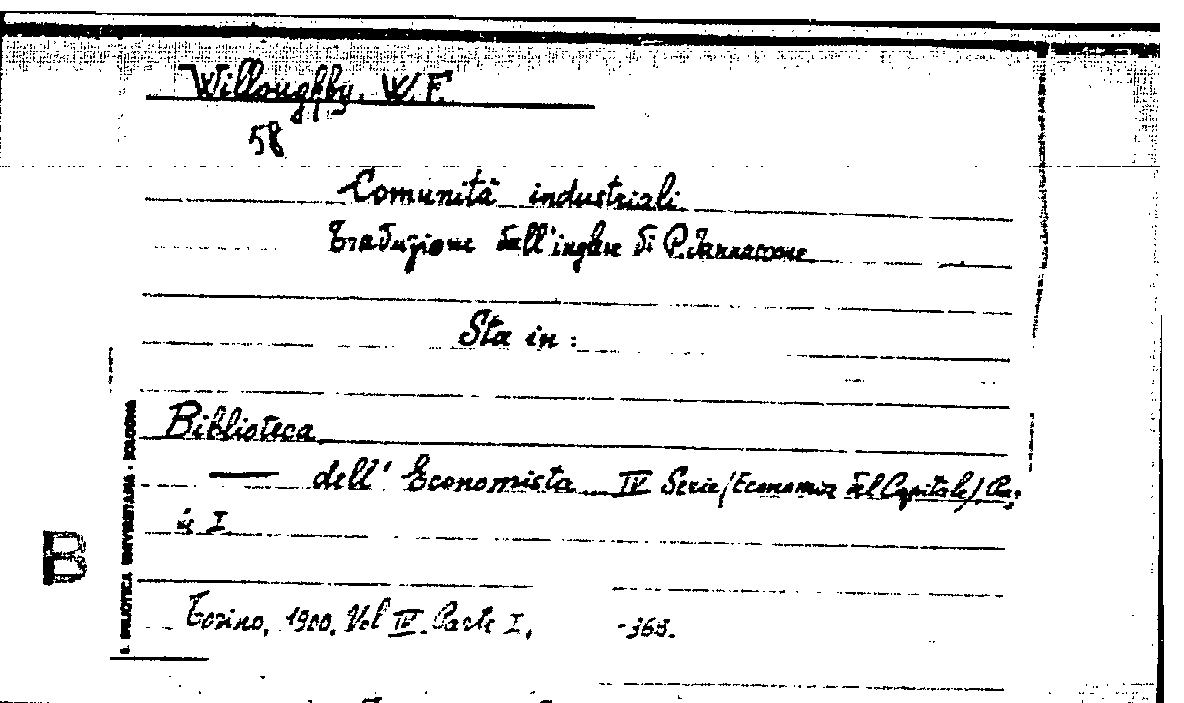 Willoughby. W.F.
58
Comunità industriali
Traduzione dall'inglese di P. Jannaccone
Sta in :
Biblioteca
— dell' Economista IV Serie (Economia del Capitale)
I
Torino, 1900, Vol IV Parte I, -368.
B
B. BIBLIOTECA UNIVERSITARIA - BOLOGNA